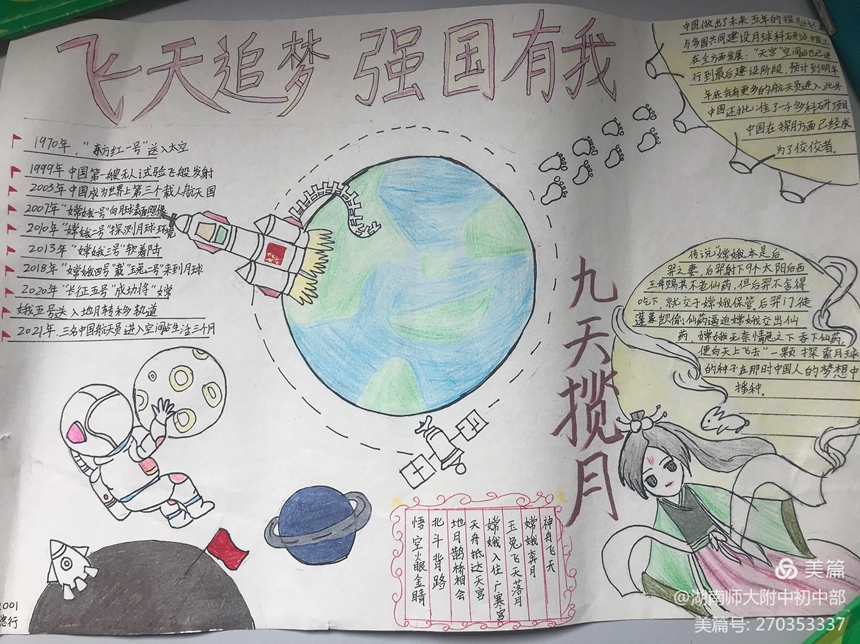 飞天追梦 强国有我
1970年，"东方红一号"送入太空
1999年 中国第一艘无人试验飞船发射
2003年 中国成为世界上第三个载人航天国
2007年 "嫦娥一号"向月球表面照像
2010年 "嫦娥二号"探测月球环境
2013年 "嫦娥三号"软着陆
2018年 "嫦娥四号"载"玉兔二号"来到月球
2020年 "长征五号"成功将"嫦
娥五号送入地月转移轨道
2021年，三名中国航天员进入空间站生活三个月
中国做出了未来五年的探月计划
与多国共同建设月球科研站
在全方面发展："天宫"空间站也已进
行到最后建设阶段，预计到明年
年底会有更多的航天员进入，此外
中国还批准了一个多科研项目
中国在探月方面已经成
为了佼佼者。
九天揽月
传说"嫦娥本是后
羿之妻，后羿射下9个太阳后西
王母赐其不老仙药，但后羿不舍得
吃下，就交于嫦娥保管，后羿门徒
蓬蒙觊偷仙药逼迫嫦娥交出仙
药，嫦娥无奈情急之下吞下仙药，
便向天上飞去"一颗探索月球
的种子在那时中国人的梦想中
播种。
神舟飞天
嫦娥奔月
玉兔飞天落月
嫦娥入住广寒宫
天舟抵达天宫
地月鹊桥相会
北斗背路
悟空火眼金睛
2001
美篇
@湖南师大附中初中部
美篇号: 270353337